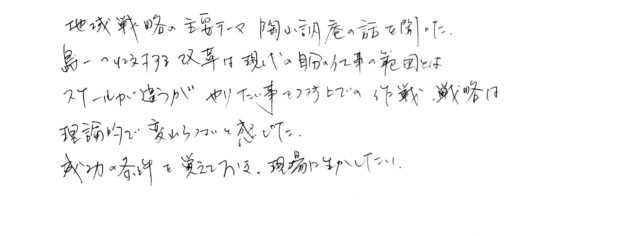 地域戦略の主要テーマ 陶山訥庵の話を聞いた。
島一つに対する改革は現代の自分の仕事の範囲とは
スケールが違うが やりたい事をする上での作戦、戦略は
理論的で変わらないと感じた。
成功の条件を覚えておき、現場に生かしたい。